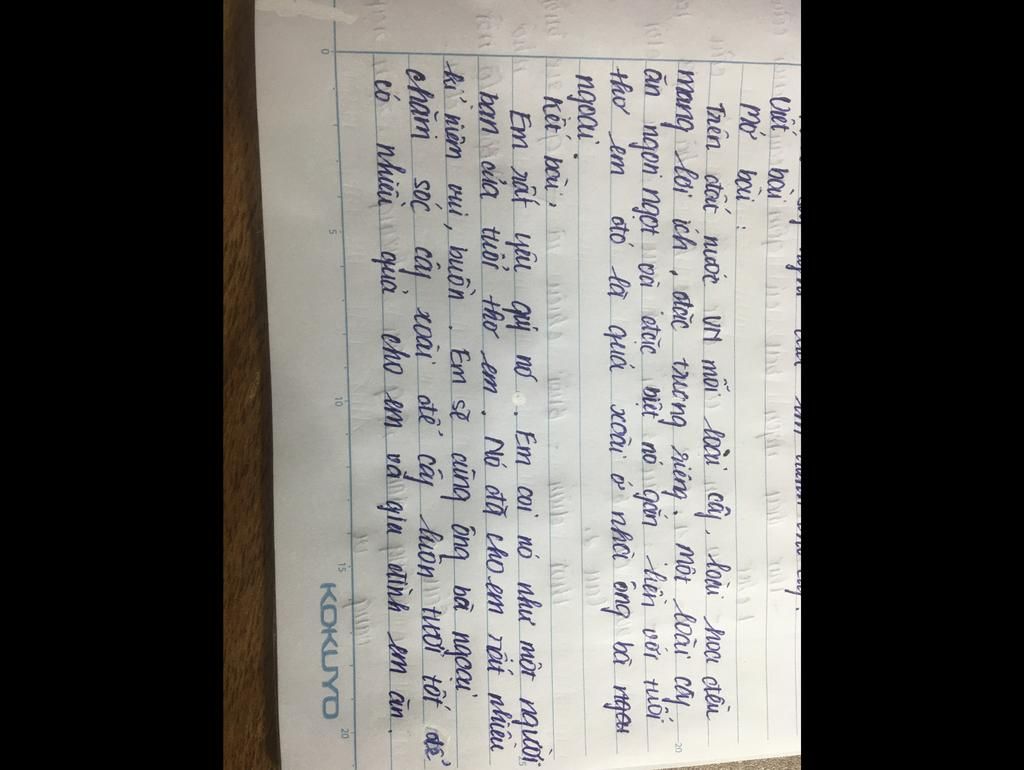 Viết bài
Mở bài:
Trên đất nước VN mỗi loài cây, loài hoa đều
mang lợi ích, đặc trưng riêng. một loài cây
ăn ngon ngọt và đặc biệt nó gắn liền với tuổi
thơ em đó là quả xoài ở nhà ông bà ngoại
ngoại.
Kết bài,
Em rất yêu quý nó. Em coi nó như một người
bạn của tuổi thơ em. Nó đã cho em rất nhiều
kỉ niệm vui, buồn. Em sẽ cùng ông bà ngoại
chăm sóc cây xoài để cây luôn tươi tốt để
có nhiều quả cho em và gia đình em ăn.
0 5 10 15 20
KOKUYO